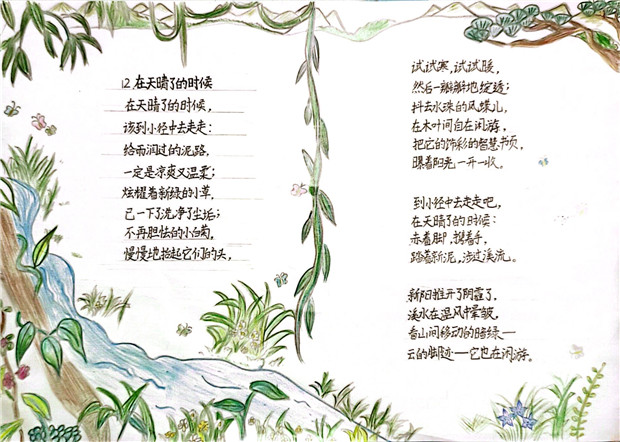 12.在天晴了的时候
在天晴了的时候，
该到小径中去走走：
给雨润过的泥路，
一定是凉爽又温柔；
炫耀着新绿的小草，
已一下了洗净了尘垢；
不再胆怯的小白菊，
慢慢地抬起它们的头，
试试寒，试试暖，
然后一瓣瓣地绽透；
抖去水珠的凤蝶儿，
在木叶间自在闲游，
把它的饰彩的智慧书页，
曝着阳光一开一收。
到小径中去走走吧，
在天晴了的时候：
赤着脚，携着手，
踏着新泥，涉过溪流。
新阳推开了阴霾了，
溪水在温风中晕皱，
看山间移动的暗绿——
云的脚迹——它也在闲游。